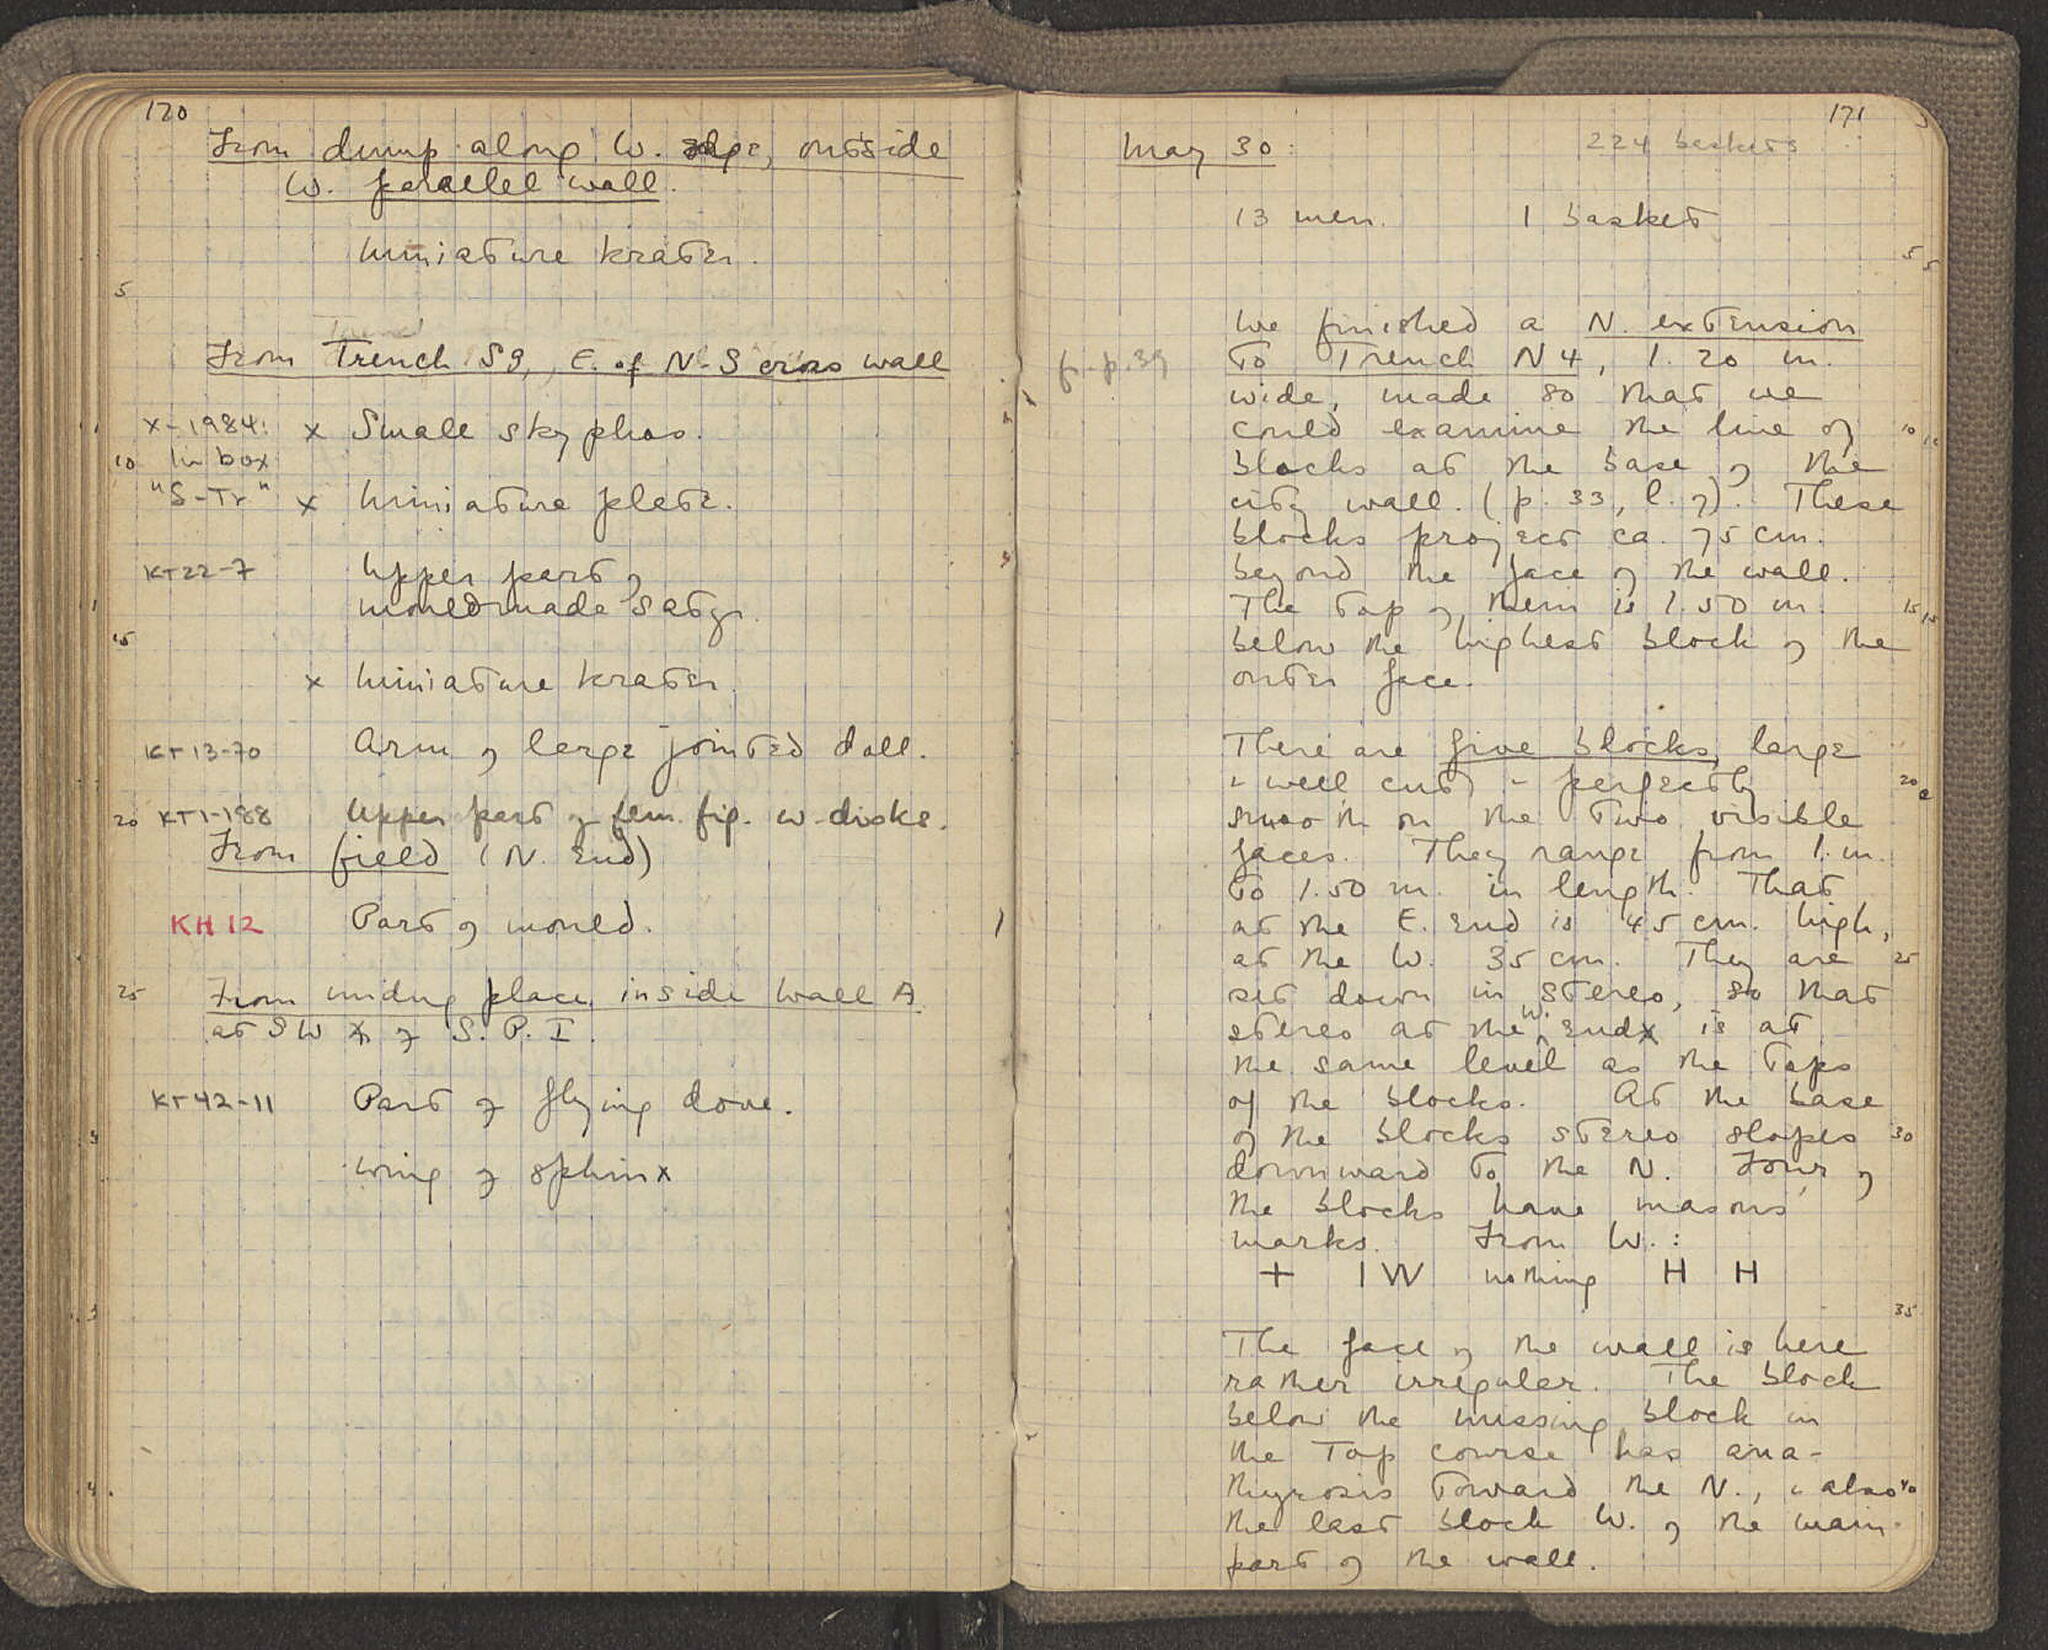 170
From dump along W. edge, outside
W. parallel wall.
Miniature krater.
5
From Trench S9, E. of N-S cross wall
X-1984: x Small skyphos.
10 In box
"S-Tr" x Miniature plate.
KT22-7 Upper part of
mouldmade satyr.
15
x Miniature krater.
KT13-70 Arm of large jointed doll.
20 KT1-188 Upper part of fem. fig. w. disks.
From field (N. End)
KH12 Part of mould.
25 From undug place inside Wall A
at SW of S. P. I.
KT42-11 Part of flying dove.
Wing of sphinx
171
May 30: 224 baskets
13 men. 1 basket
5
We finished a N. extension
fr. p. 39 to Trench N4, 1.20 m.
wide, made so that we
could examine the line of 10
blocks at the base of the
city wall. (p. 33, l. 7). These
blocks project ca. 75 cm.
beyond the face of the wall.
The top of them is 1.50 m. 15
below the highest block of the
outer face.
There are five blocks, large
& well cut, - perfectly 20
smooth on the two visible
faces. They range from 1. m.
to 1.50 m. in length. That
at the E. End is 45 cm. high,
at the W. 35 cm. They are 25
set down in stereo, so that
stereo at the W. End is at
the same level as the tops
of the blocks. At the base
of the blocks stereo slopes 30
downward to the N. Four of
the blocks have masons'
marks. From W.:
+ I W nothing H H
35
The face of the wall is here
rather irregular. The block
below the missing block in
the top course has ana-
thyrosis toward the N., & also 40
the last block W. of the main
part of the wall.